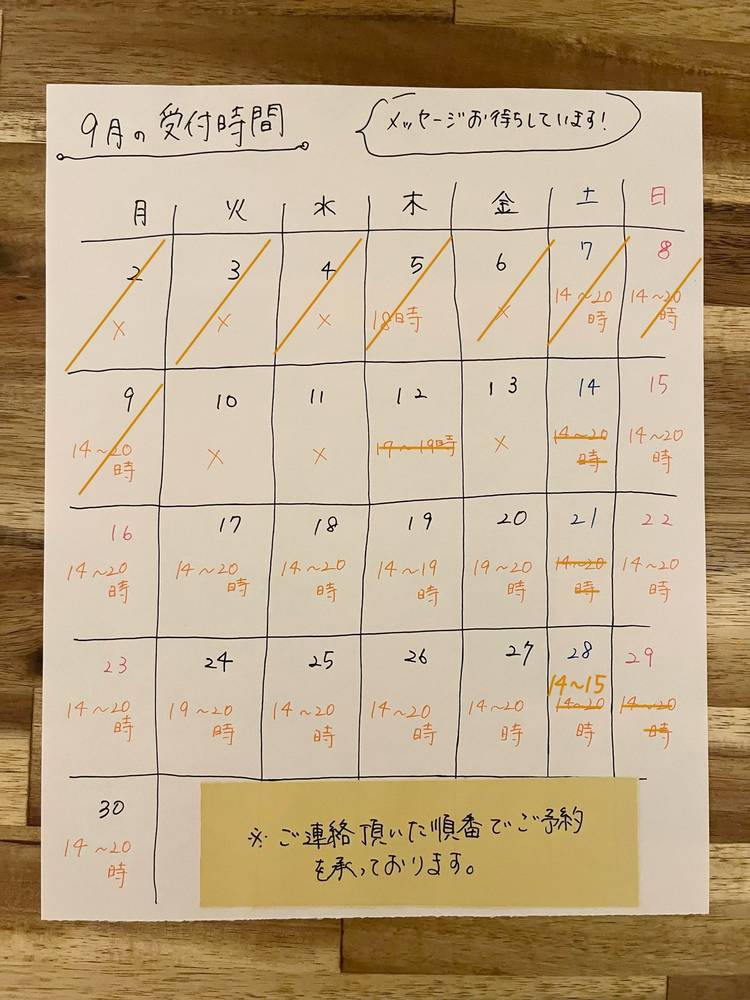 9月の受付時間
メッセージお待ちしています!
月 火 水 木 金 土 日
2 3 4 5 6 7 8
× × × 18時 × 14~20時 14~20時
9 10 11 12 13 14 15
14~20時 × × 17~19時 × 14~20時 14~20時
16 17 18 19 20 21 22
14~20時 14~20時 14~20時 14~19時 19~20時 14~20時 14~20時
23 24 25 26 27 28 29
14~15
14~20時 19~20時 14~20時 14~20時 14~20時 14~20時 14~20時
30
14~20時
※ご連絡頂いた順番でご予約
を承っております。